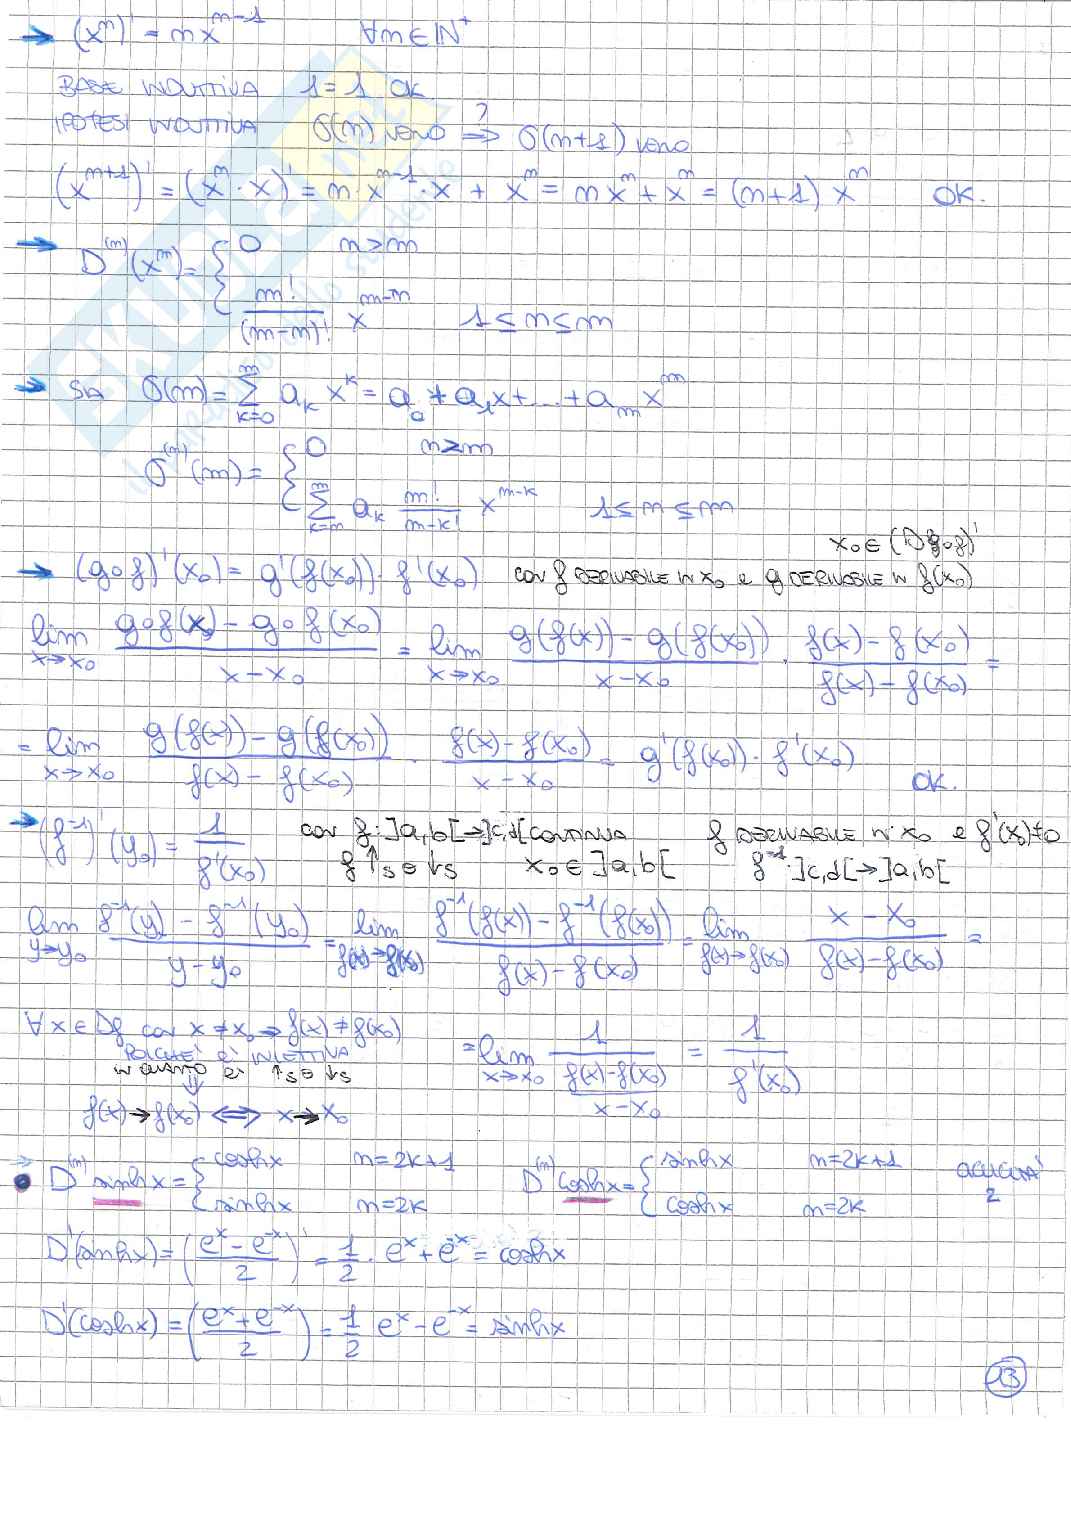 → (xⁿ)' = nxⁿ⁻¹ ∀n∈ℕ⁺
BASE INDUTTIVA 1=1 OK
IPOTESI INDUTTIVA P(n) VERO ⇒? P(n+1) VERO
(xⁿ⁺¹)' = (xⁿ·x)' = n·xⁿ⁻¹·x + xⁿ = nxⁿ+xⁿ = (n+1)xⁿ OK.
→ D⁽ⁿ⁾(xᵐ) = { 0 n>m
m!/(m-n)! xᵐ⁻ⁿ 1≤n≤m
→ SIA P(m) = Σ_{k=0}^{m} a_k x^k = a₀+a₁x+...+a_m xᵐ
P⁽ⁿ⁾(m) = { 0 n>m
Σ_{k=n}^{m} a_k m!/m-k! x^{m-k} 1≤n≤m
x₀∈(Dg∘f)'
→ (g∘f)'(x₀) = g'(f(x₀))·f'(x₀) CON f DERIVABILE IN x₀ E g DERIVABILE IN f(x₀)
lim_{x→x₀} (g∘f(x) - g∘f(x₀))/(x-x₀) = lim_{x→x₀} (g(f(x)) - g(f(x₀)))/(x-x₀) · (f(x)-f(x₀))/(f(x)-f(x₀)) =
= lim_{x→x₀} (g(f(x)) - g(f(x₀)))/(f(x)-f(x₀)) · (f(x)-f(x₀))/(x-x₀) = g'(f(x₀))·f'(x₀) OK.
→ (f⁻¹)'(y₀) = 1/f'(x₀) CON f:]a,b[→]c,d[ CONTINUA f DERIVABILE IN x₀ E f'(x₀)≠0
f ↑s o ↓s x₀∈]a,b[ f⁻¹:]c,d[→]a,b[
lim_{y→y₀} (f⁻¹(y) - f⁻¹(y₀))/(y-y₀) = lim_{f(x)→f(x₀)} (f⁻¹(f(x)) - f⁻¹(f(x₀)))/(f(x)-f(x₀)) = lim_{f(x)→f(x₀)} (x-x₀)/(f(x)-f(x₀)) =
∀x∈Df CON x≠x₀ ⇒ f(x)≠f(x₀)
POICHE' E' INIETTIVA
IN QUANTO E' ↑s o ↓s
⇓
= lim_{x→x₀} 1/((f(x)-f(x₀))/(x-x₀)) = 1/f'(x₀)
f(x)→f(x₀) ⇔ x→x₀
⇒ • D⁽ⁿ⁾ sinhx = { coshx n=2k+1 D⁽ⁿ⁾ coshx = { sinhx n=2k+1
sinhx n=2k coshx n=2k 2
D'(sinhx) = ((eˣ-e⁻ˣ)/2)' = 1/2 · eˣ+e⁻ˣ = coshx
D'(coshx) = ((eˣ+e⁻ˣ)/2)' = 1/2 eˣ-e⁻ˣ = sinhx
13